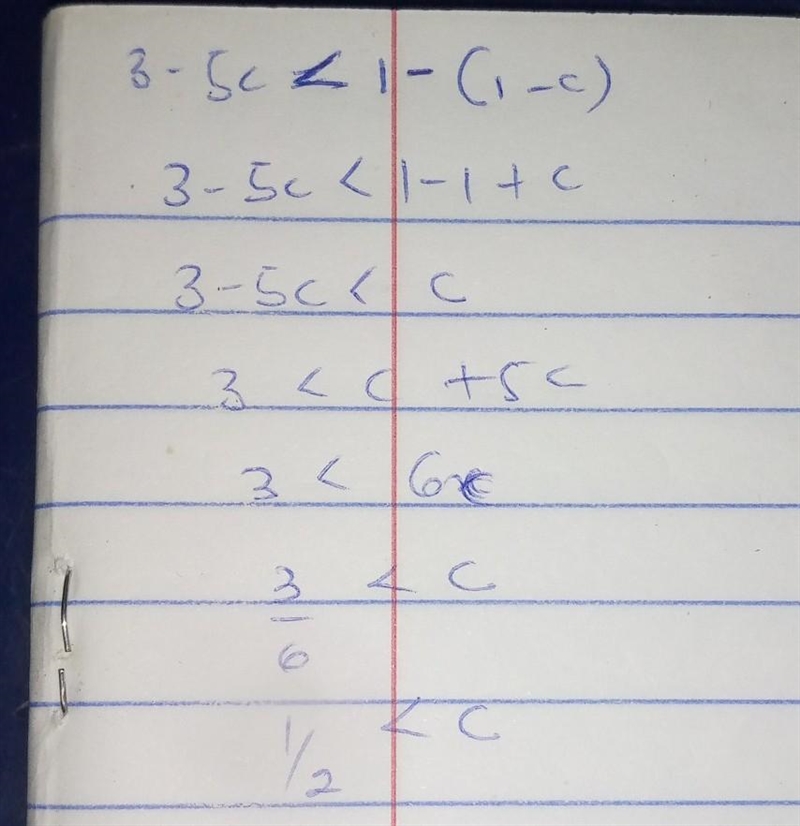 3 - 5c < 1 - (1 - c)
3 - 5c < 1 - 1 + c
3 - 5c < c
3 < c + 5c
3 < 6c
3/6 < c
1/2 < c